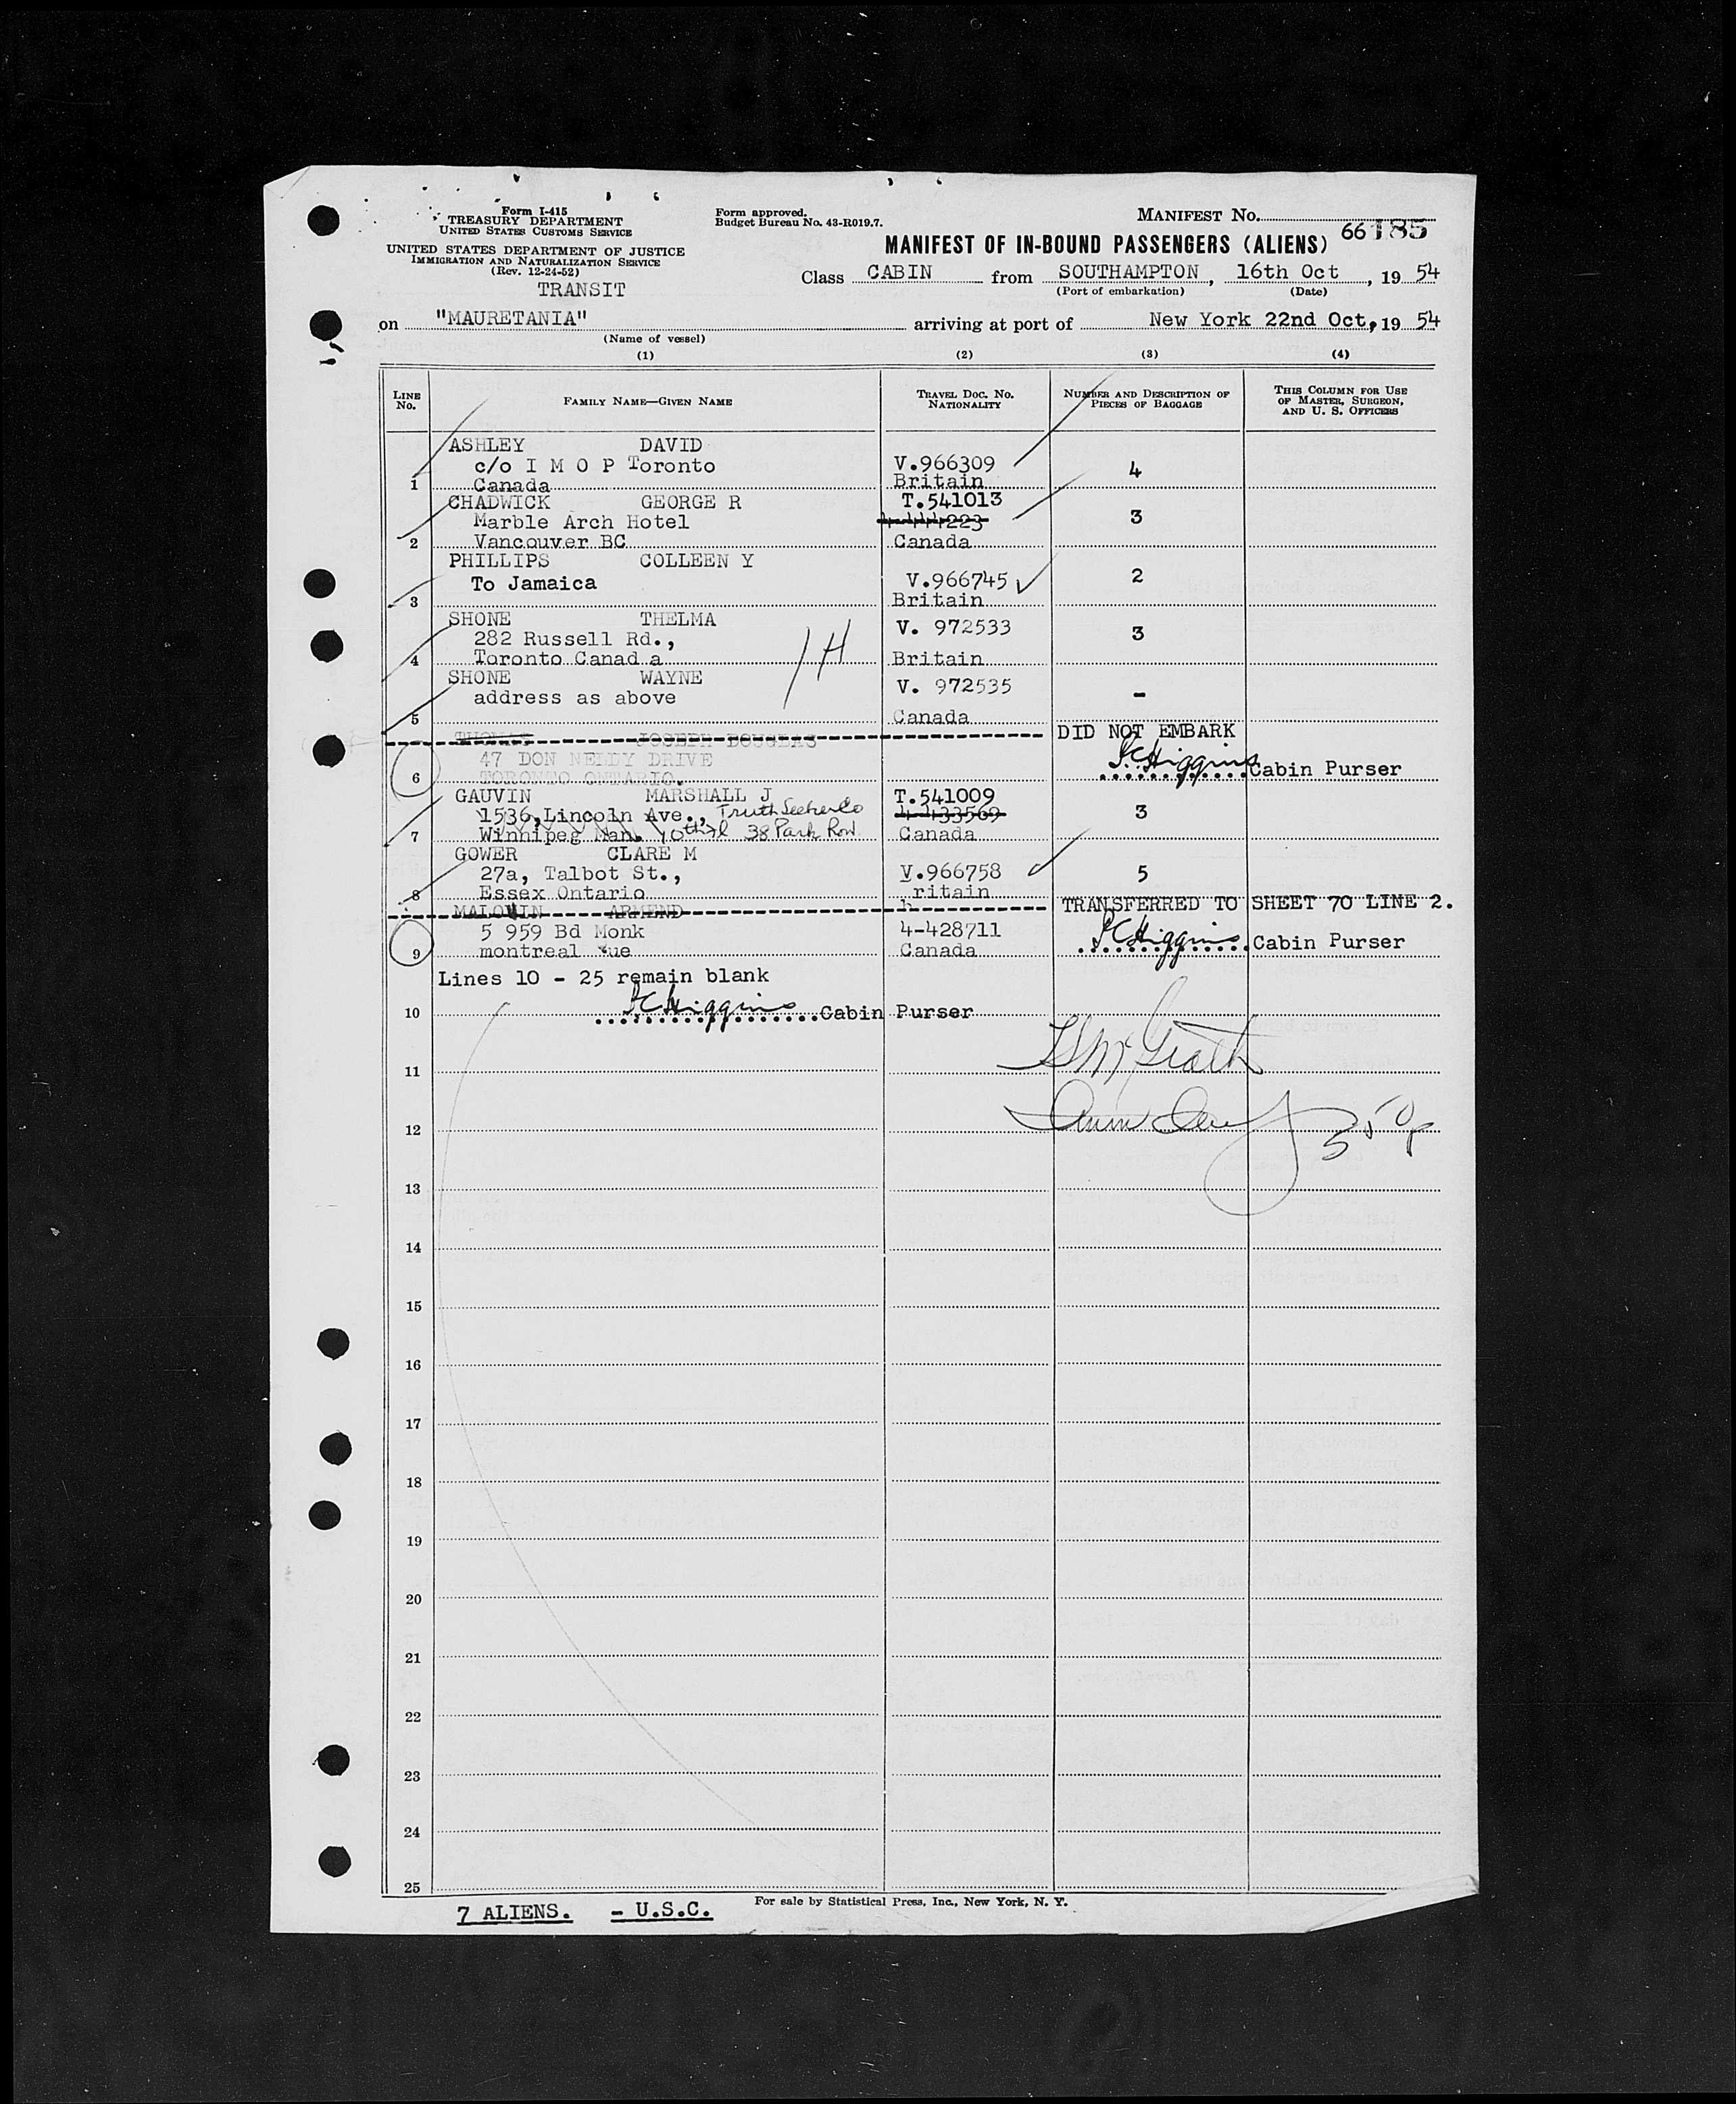 Form I-415
TREASURY DEPARTMENT
UNITED STATES CUSTOMS SERVICE
UNITED STATES DEPARTMENT OF JUSTICE
IMMIGRATION AND NATURALIZATION SERVICE
(Rev. 12-24-52)
TRANSIT
Form approved.
Budget Bureau No. 43-R019.7.
MANIFEST NO.
66 185
MANIFEST OF IN-BOUND PASSENGERS (ALIENS)
Class CABIN from SOUTHAMPTON, 16th Oct, 19 54
(Port of embarkation) (Date)
on "MAURETANIA" arriving at port of New York 22nd Oct, 19 54
(Name of vessel)
(1) (2) (3) (4)
LINE NO. FAMILY NAME—GIVEN NAME TRAVEL DOC. NO. NATIONALITY NUMBER AND DESCRIPTION OF PIECES OF BAGGAGE THIS COLUMN FOR USE OF MASTER, SURGEON, AND U. S. OFFICERS
ASHLEY DAVID
c/o I M O P Toronto V.966309 4
1 Canada Britain
CHADWICK GEORGE R T.541013
Marble Arch Hotel 3
2 Vancouver BC Canada
PHILLIPS COLLEEN Y
To Jamaica V.966745 2
3 Britain
SHONE THELMA V. 972533
282 Russell Rd., 3
4 Toronto Canad a Britain
SHONE WAYNE V. 972535
address as above -
5 Canada
THOMAS JOSEPH DOUGLAS DID NOT EMBARK
47 DON NEDDY DRIVE
6 TORONTO ONTARIO. PCHiggins Cabin Purser
GAUVIN MARSHALL J T.541009
1536, Lincoln Ave., Truth Seeker Co 4-433509 3
7 Winnipeg Man. 38 Park Row Canada
GOWER CLARE M
27a, Talbot St., V.966758 5
8 Essex Ontario ritain
MALOWIN ARMEND b TRANSFERRED TO SHEET 70 LINE 2.
5 959 Bd Monk 4-428711
9 montreal que Canada PCHiggins Cabin Purser
Lines 10 - 25 remain blank
10 PCHiggins Cabin Purser
11
12
13
14
15
16
17
18
19
20
21
22
23
24
25
For sale by Statistical Press, Inc., New York, N. Y.
7 ALIENS. - U.S.C.